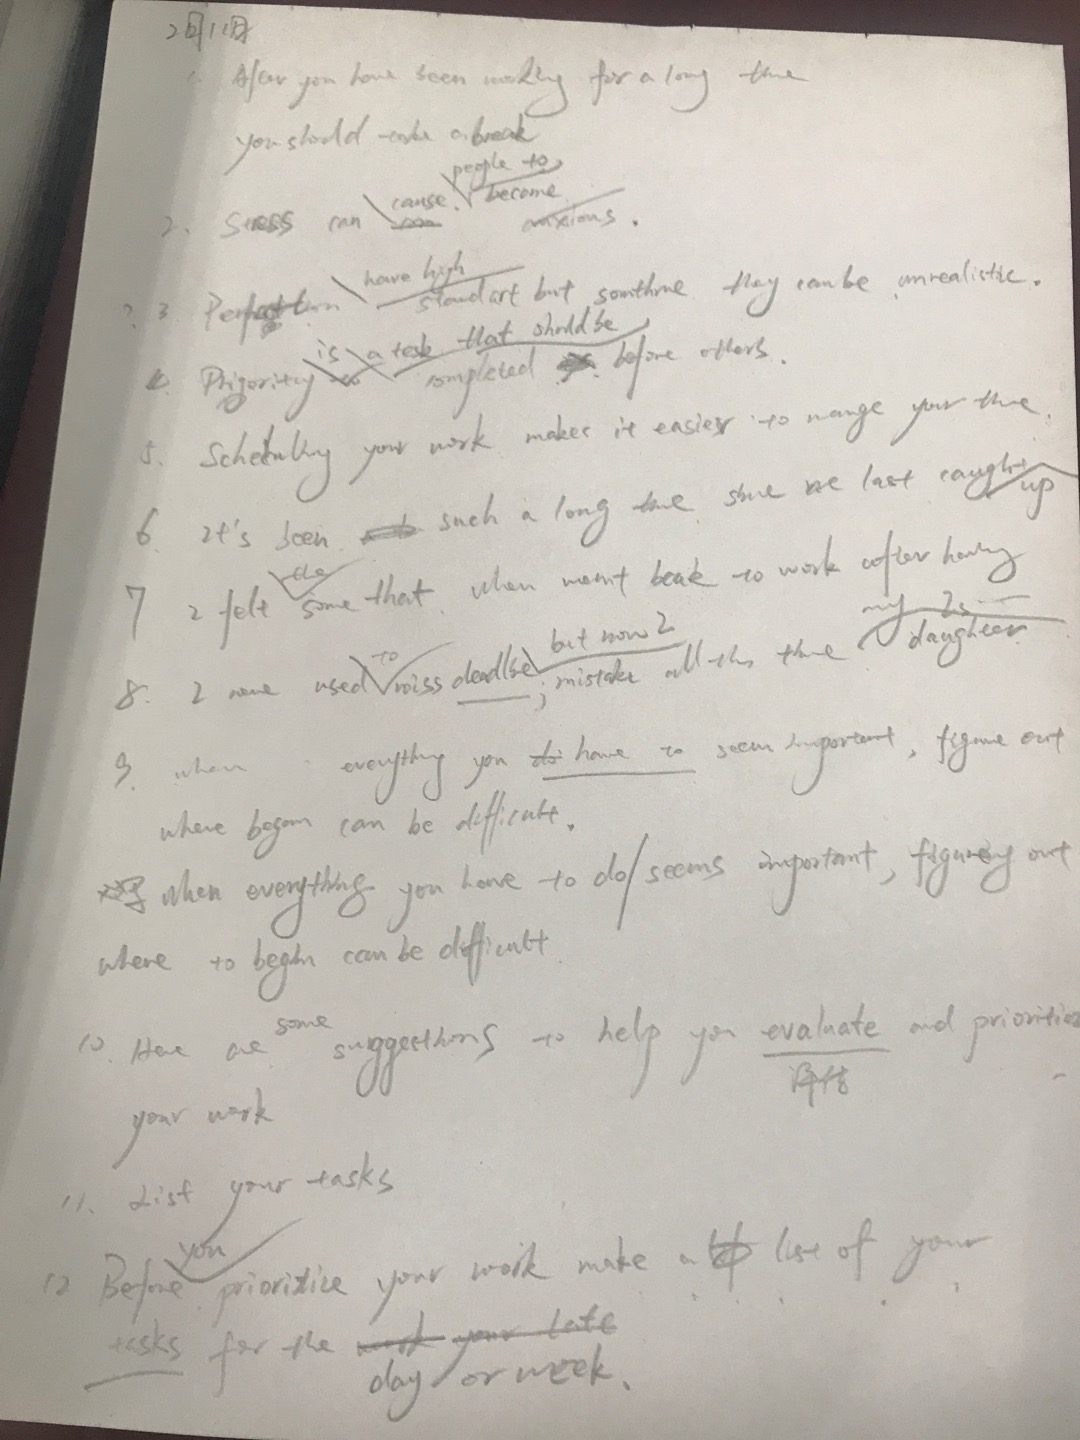 2月11日
1. After you have been working for a long time
you should take a break
people to
2. Stress can cause become anxious.
have high
3. standart but somtime they can be unrealistic.
is a task that should be
4. Prigority completed before others.
5. Schetulling your work makes it easier to mange your time.
6 It's been such a long time sine we last caught up
the
7 I felt some that when went beak to work after having
my
to but now I daughter
8. I neve used miss deadline; mistake all the time
9. when everything you do have to seem important, figure out
where began can be difficult.
When everything you have to do/seems important, figureing out
where to begin can be difficult
some
10. Here are suggesthons to help you evaluate and priorities
评估
your work
11. List your tasks
you
12 Before prioritize your work make a list of your
tasks for the work your late
day or week.